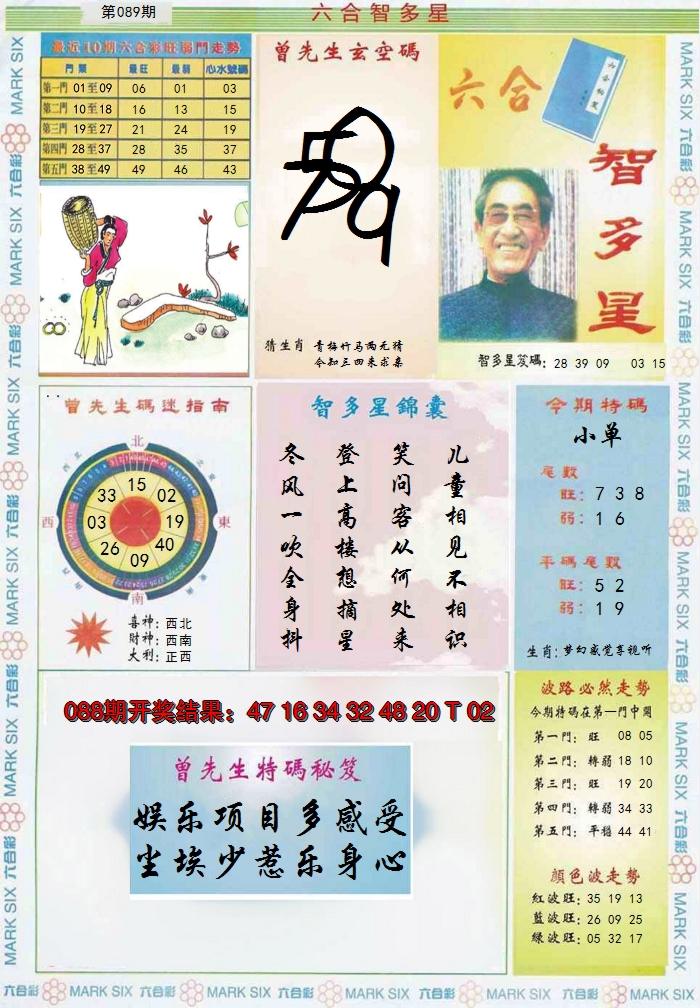 第089期
六合智多星
最近10期六合彩旺弱門走勢
門類 最旺 最弱 心水號碼
第一門 01至09 06 01 03
第二門 10至18 16 13 15
第三門 19至27 21 24 19
第四門 28至37 28 35 37
第五門 38至49 49 46 43
曾先生玄空碼
猜生肖 青梅竹马两无猜
今知三四来求集
六合
六合秘笈
智多星
智多星笈碼: 28 39 09 03 15
曾先生碼迷指南
北
西
東
南
15
02
19
40
09
26
03
33
喜神: 西北
財神: 西南
大利: 正西
智多星錦囊
儿童相见不相识
笑问客从何处来
登上高楼想摘星
冬风一吹全身抖
今期特碼
小单
尾數
旺: 7 3 8
弱: 1 6
平碼尾數
旺: 5 2
弱: 1 9
生肖: 梦幻感觉享视听
088期开奖结果: 47 16 34 32 48 20 T 02
曾先生特碼秘笈
娱乐项目多感受
尘埃少惹乐身心
波路必然走勢
今期特碼在第一門中開
第一門: 旺 08 05
第二門: 轉弱 18 10
第三門: 旺 19 20
第四門: 轉弱 34 33
第五門: 平穩 44 41
顏色波走勢
紅波旺: 35 19 13
藍波旺: 26 09 25
綠波旺: 05 32 17
MARK SIX 六合彩 MARK SIX 六合彩 MARK SIX 六合彩 MARK SIX 六合彩 MARK SIX